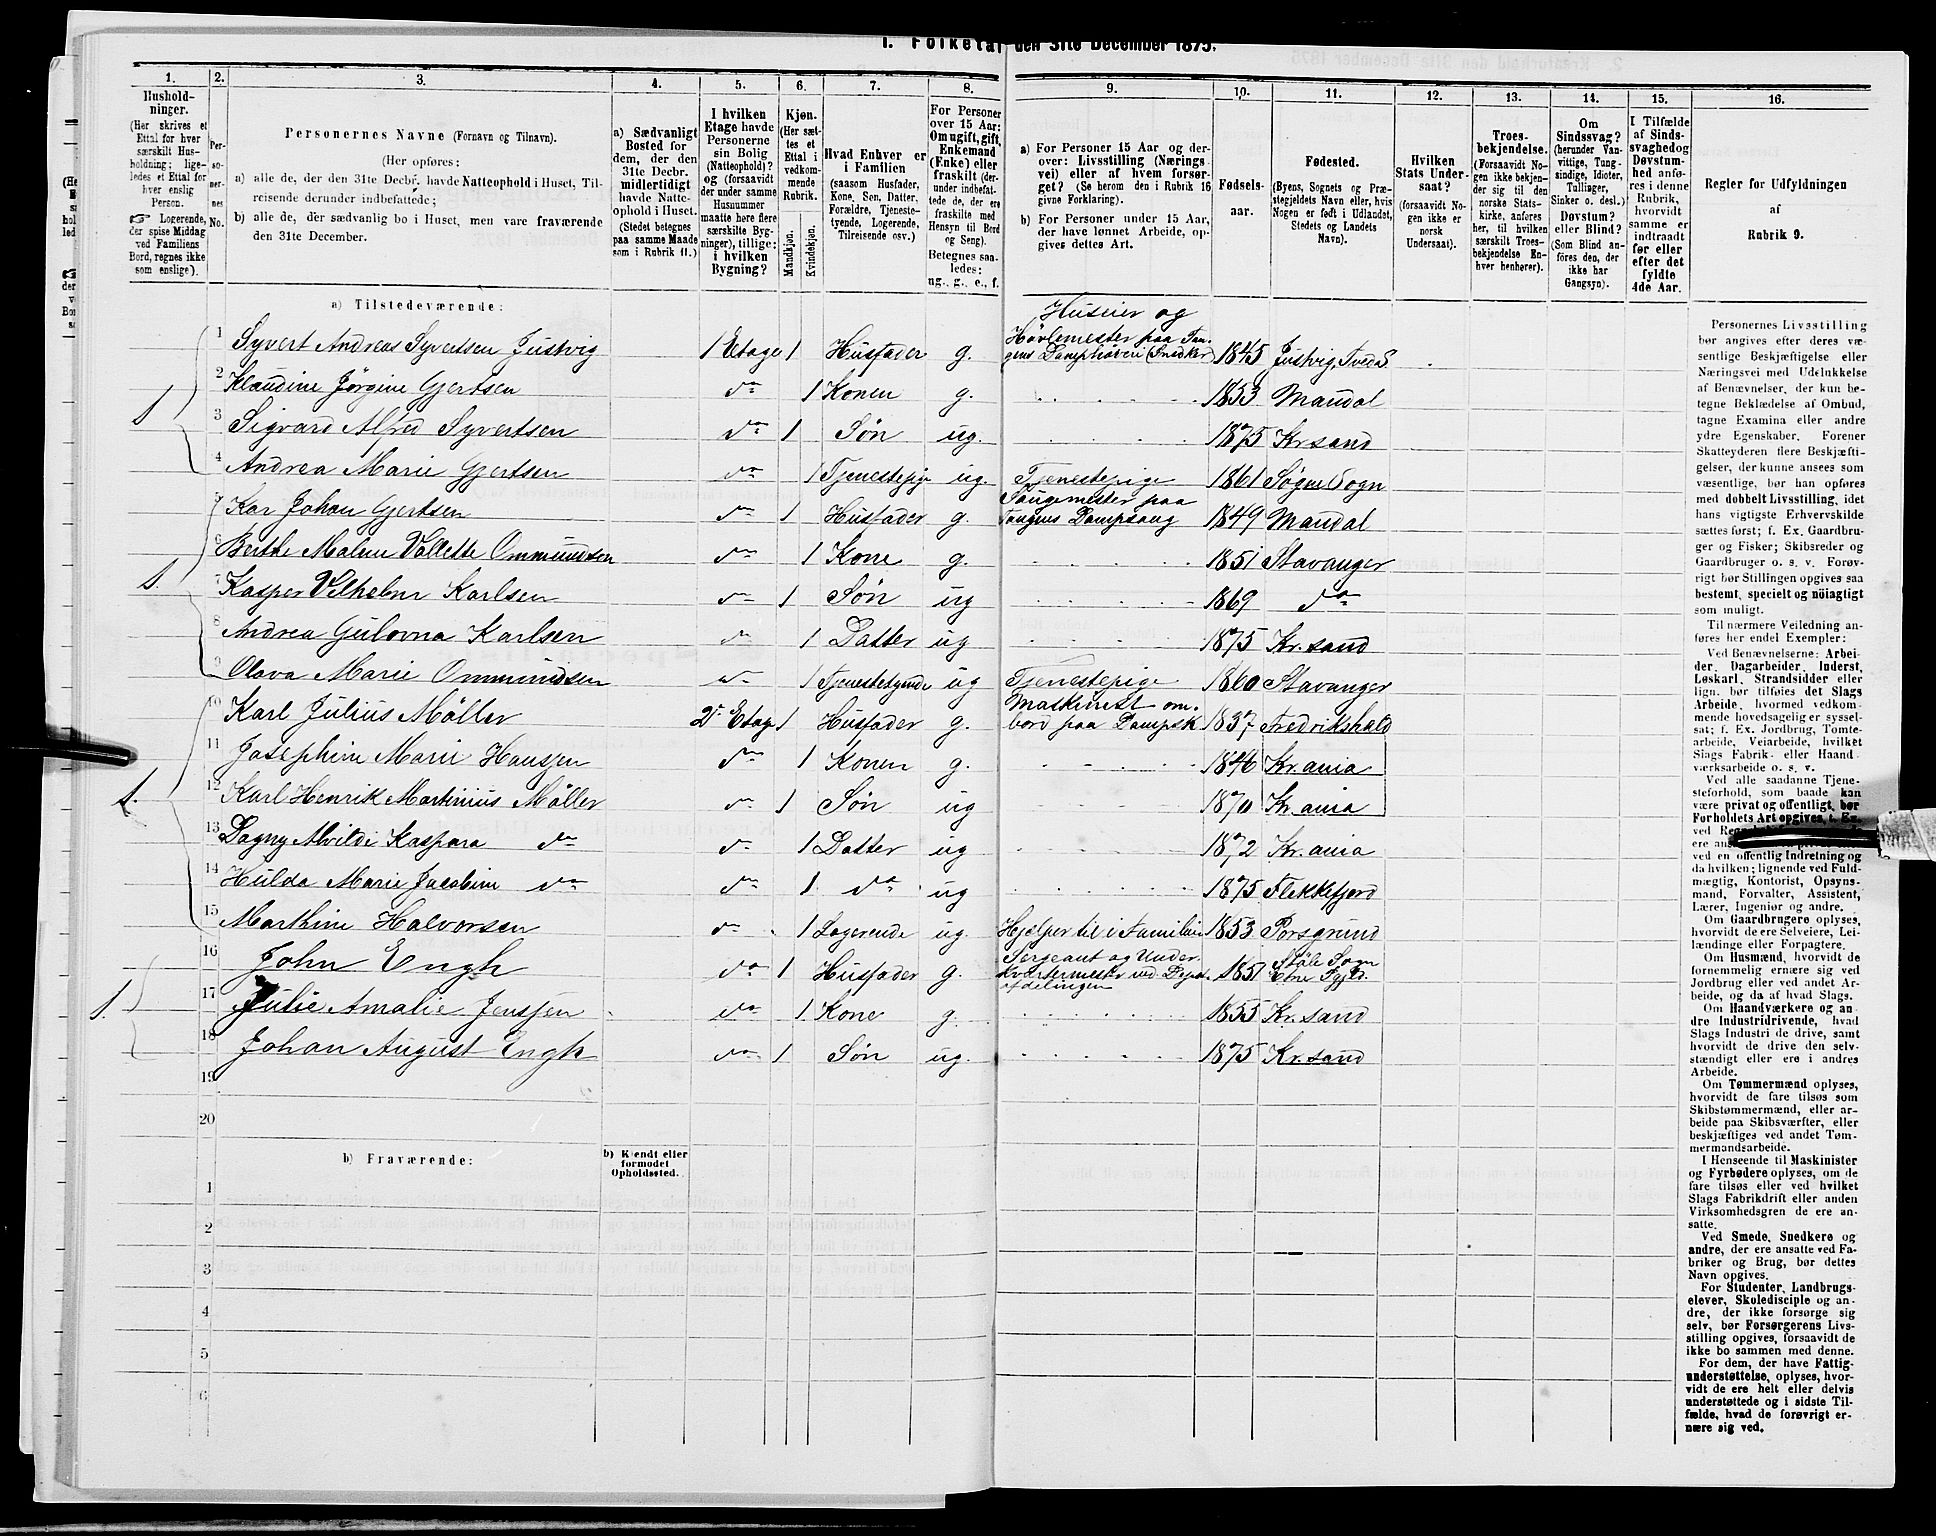 1. Folketal den 31te December 1875.
1. 2. 3. 4. 5. 6. 7. 8. 9. 10. 11. 12. 13. 14. 15. 16.
Husholdninger.
(Her skrives et
Ettal for hver
særskilt Husholdning;
ligeledes et Ettal for
hver enslig
Person.
Logerende,
der spise Middag
ved Familiens
Bord, regnes ikke
som enslige).
Personernes
No.
Personernes Navne (Fornavn og Tilnavn).
(Her opføres:
a) alle de, der den 31te Decbr. havde Natteophold i Huset, Tilreisende
derunder indbefattede;
b) alle de, der sædvanlig bo i Huset, men vare fraværende
den 31te December.
a) Sædvanligt
Bosted for
dem, der den
31te Decbr.
midlertidigt
havde Natteophold
i Huset.
(Stedet betegnes
paa samme Maade
som i Rubrik 11.)
I hvilken
Etage havde
Personerne
sin Bolig
(Natteophold)?
og (forsaavidt
der under samme
Husnummer
maatte høre flere
særskilte Bygninger),
tillige:
i hvilken
Bygning?
Kjøn.
(Her sættes
et
Ettal i
vedkommende
Rubrik.
Mandkjøn.
Kvindekjøn.
Hvad Enhver er
i Familien
(saasom Husfader,
Kone, Søn, Datter,
Forældre, Tjenestetyende,
Logerende,
Tilreisende osv.)
For Personer
over 15 Aar:
Om ugift, gift,
Enkemand
(Enke) eller
fraskilt (derunder
indbefattede
de, der ere
fraskilte med
Hensyn til Bord
og Seng).
Betegnes saaledes:
ug., g., e., f.
a) For Personer 15 Aar og derover:
Livsstilling (Næringsvei)
eller af hvem forsørget?
(Se herom den i Rubrik 16
givne Forklaring).
b) For Personer under 15 Aar,
der have lønnet Arbeide, opgives
dettes Art.
Fødselsaar.
Fødested.
(Byens, Sognets og Præstegjeldets
Navn eller, hvis
Nogen er født i Udlandet,
Stedets og Landets
Navn).
Hvilken
Stats Undersaat?
(forsaavidt Nogen
ikke er
norsk
Undersaat).
Troesbekjendelse.
(Forsaavidt Nogen
ikke bekjender
sig til den
norske Statskirke,
anføres
her, til hvilken
særskilt Troesbekjendelse
Enhver
henhører).
Om
Sindssvag?
(herunder Vanvittige,
Tungsindige,
Idioter,
Tullinger,
Sinker o. desl.)
Døvstum?
eller Blind?
(Som Blind anføres
den, der
ikke har
Gangsyn).
I Tilfælde
af Sindssvaghed
og
Døvstumhed
anføres
i denne
Rubrik,
hvorvidt
samme er
indtraadt
før eller
efter det
fyldte
4de Aar.
Regler for Udfyldningen
af
Rubrik 9.
a) Tilstedeværende:
1 Syvert Andreas Syvertsen Justvig 1 Etage 1 Husfader g. Huseier og Høvlemester paa Tangens Damphøveri (Snedker) 1845 Justvig, Tveda S
2 Klaudine Jørgine Gjertsen do 1 Konen g. 1853 Mandal
3 Sigvard Alfred Syvertsen do 1 Søn ug. 1875 Kr.sand
4 Andrea Marie Gjertsen do 1 Tjenestepige ug. Tjenestepige 1861 Søgne Sogn
5 Kar Johan Gjertsen do 1 Husfader g. Saugemester paa Tangens Dampsaug 1849 Mandal
6 Berthe Malene Vollette Ommundsen do 1 Kone g. 1851 Stavanger
7 Kasper Vilhelm Karlsen do 1 Søn ug 1869 do
8 Andrea Gulovna Karlsen do 1 Datter ug 1875 Kr.sand
9 Olava Marie Ommundsen do 1 Tjenestetyende ug Tjenestepige 1860 Stavanger
10 Karl Julius Möller 2 Etage 1 Husfader g. Maskinist ombord paa Dampsk 1837 Fredrikshald
11 Josephine Marie Hansen do 1 Konen g. 1846 Kr.ania
12 Karl Henrik Martinius Möller do 1 Søn ug 1870 Kr.ania
13 Dagny Alvilde Kaspara do do 1 Datter ug 1872 Kr.ania
14 Hulda Marie Jacobine do do 1 do ug 1875 Flekkefjord
15 Marthine Halvorsen do 1 Logerende ug. Hjælper til i Familien 1853 Porsgrund
16 John Engh do 1 Husfader g. Sergeant og Underkvartermester ved Depotafdelingen 1851 Støle Sogn Etne Pgjld.
17 Julie Amalie Jenssen do 1 Kone g. 1855 Kr.sand
18 Johan August Engh do 1 Søn ug. 1875 Kr.sand
19
20
b) Fraværende:
b) Kjendt eller
formodet
Opholdssted.
1
2
3
4
5
6
Personernes Livsstilling
bør angives efter deres væsentlige
Beskjæftigelse eller
Næringsvei med Udelukkelse
af Benævnelser, der kun betegne
Beklædelse af Ombud,
tagne Examina eller andre
ydre Egenskaber. Forener
Skatteyderen flere Beskjæftigelser,
der kunne ansees som
væsentlige, bør han opføres
med dobbelt Livsstilling, idet
hans vigtigste Erhvervskilde
sættes først; f. Ex. Gaardbruger
og Fisker; Skibsreder og
Gaardbruger o. s. v. Forøvrigt
bør Stillingen opgives saa
bestemt, specielt og nöiagtigt
som muligt.
Til nærmere Veiledning anføres
her endel Exempler:
Ved Benævnelserne: Arbeider,
Dagarbeider, Inderst,
Løskarl, Strandsidder eller
lign. bør tilføies det Slags
Arbeide, hvormed vedkommende
hovedsagelig er sysselsat;
f. Ex. Jordbrug, Tomtearbeide,
Veiarbeide, hvilket
Slags Fabrik- eller Haandværksarbeide
o. s. v.
Ved alle saadanne Tjenesteforhold,
som baade kan
være privat og offentligt, bør
Forholdets Art opgives, t. Ex.
ved
ved en offentlig Indretning og
da hvilken; lignende ved Fuldmægtig,
Kontorist, Opsynsmand,
Forvalter, Assistent,
Lærer, Ingeniør og andre.
Om Gaardbrugere oplyses,
hvorvidt de ere Selveiere, Leilændinge
eller Forpagtere.
Om Husmænd, hvorvidt de
fornemmelig ernære sig ved
Jordbrug eller ved andet Arbeide,
og da af hvad Slags.
Om Haandværkere og andre
Industridrivende, hvad
Slags Industri de drive, samt
hvorvidt de drive den selvstændigt
eller ere i andres
Arbeide.
Om Tømmermænd oplyses,
hvorvidt de fare tilsøs som
Skibstømmermænd, eller arbeide
paa Skibsværfter, eller
beskjæftiges ved andet Tømmermandsarbeide.
I Henseende til Maskinister
og Fyrbødere oplyses, om de
fare tilsøs eller ved hvilket
Slags Fabrikdrift eller anden
Virksomhedsgren de ere ansatte.
Ved Smede, Snedkere og
andre, der ere ansatte ved Fabriker
og Brug, bør dettes
Navn opgives.
For Studenter, Landbrugselever,
Skoledisciple og andre,
der ikke forsørge sig
selv, bør Forsørgerens Livsstilling
opgives, forsaavidt de
ikke bo sammen med denne.
For dem, der have Fattigunderstøttelse,
oplyses, hvorvidt
de ere helt eller delvis
understøttede og i sidste Tilfælde,
hvad de forøvrigt ernære
sig ved.